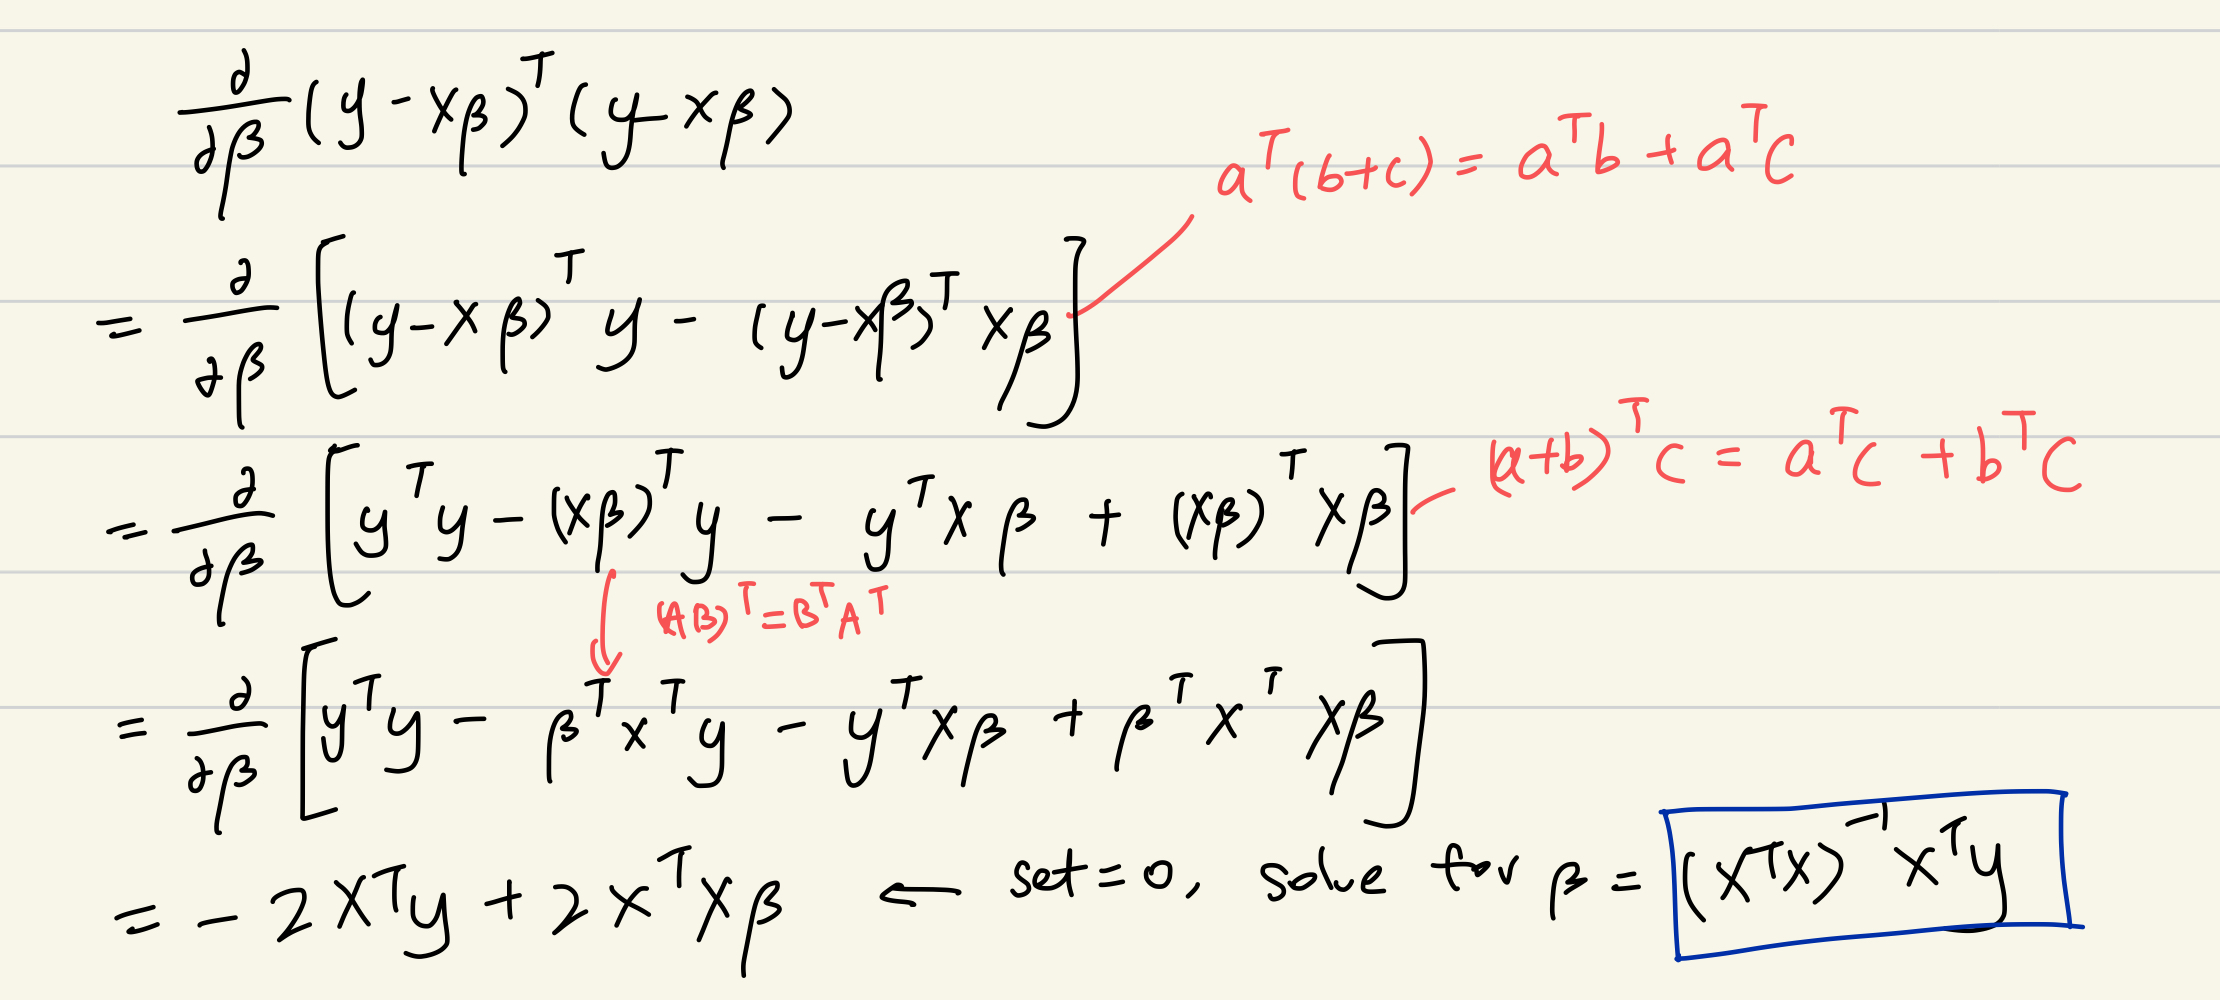 ∂/∂β (y-Xβ)ᵀ(y-Xβ)
aᵀ(b+c) = aᵀb + aᵀc
= ∂/∂β [(y-Xβ)ᵀ y - (y-Xβ)ᵀ Xβ]
(a+b)ᵀc = aᵀc + bᵀc
= ∂/∂β [yᵀy - (Xβ)ᵀy - yᵀXβ + (Xβ)ᵀXβ]
(AB)ᵀ = BᵀAᵀ
= ∂/∂β [yᵀy - βᵀXᵀy - yᵀXβ + βᵀXᵀXβ]
= -2Xᵀy + 2XᵀXβ ← set=0, solve for β = (XᵀX)⁻¹Xᵀy